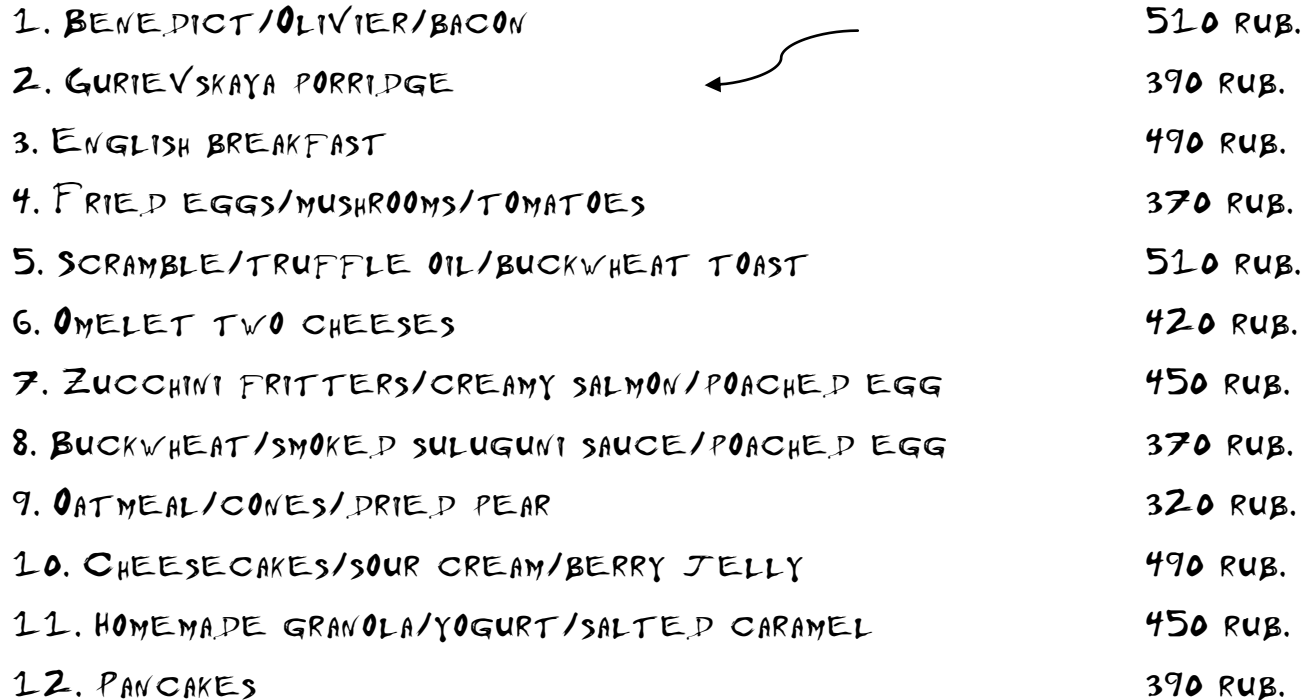 1. Benedict/Olivier/bacon 510 rub.
2. Gurievskaya porridge 390 rub.
3. English breakfast 490 rub.
4. Fried eggs/mushrooms/tomatoes 370 rub.
5. Scramble/truffle oil/buckwheat toast 510 rub.
6. Omelet two cheeses 420 rub.
7. Zucchini fritters/creamy salmon/poached egg 450 rub.
8. Buckwheat/smoked suluguni sauce/poached egg 370 rub.
9. Oatmeal/cones/dried pear 320 rub.
10. Cheesecakes/sour cream/berry jelly 490 rub.
11. Homemade granola/yogurt/salted caramel 450 rub.
12. Pancakes 390 rub.